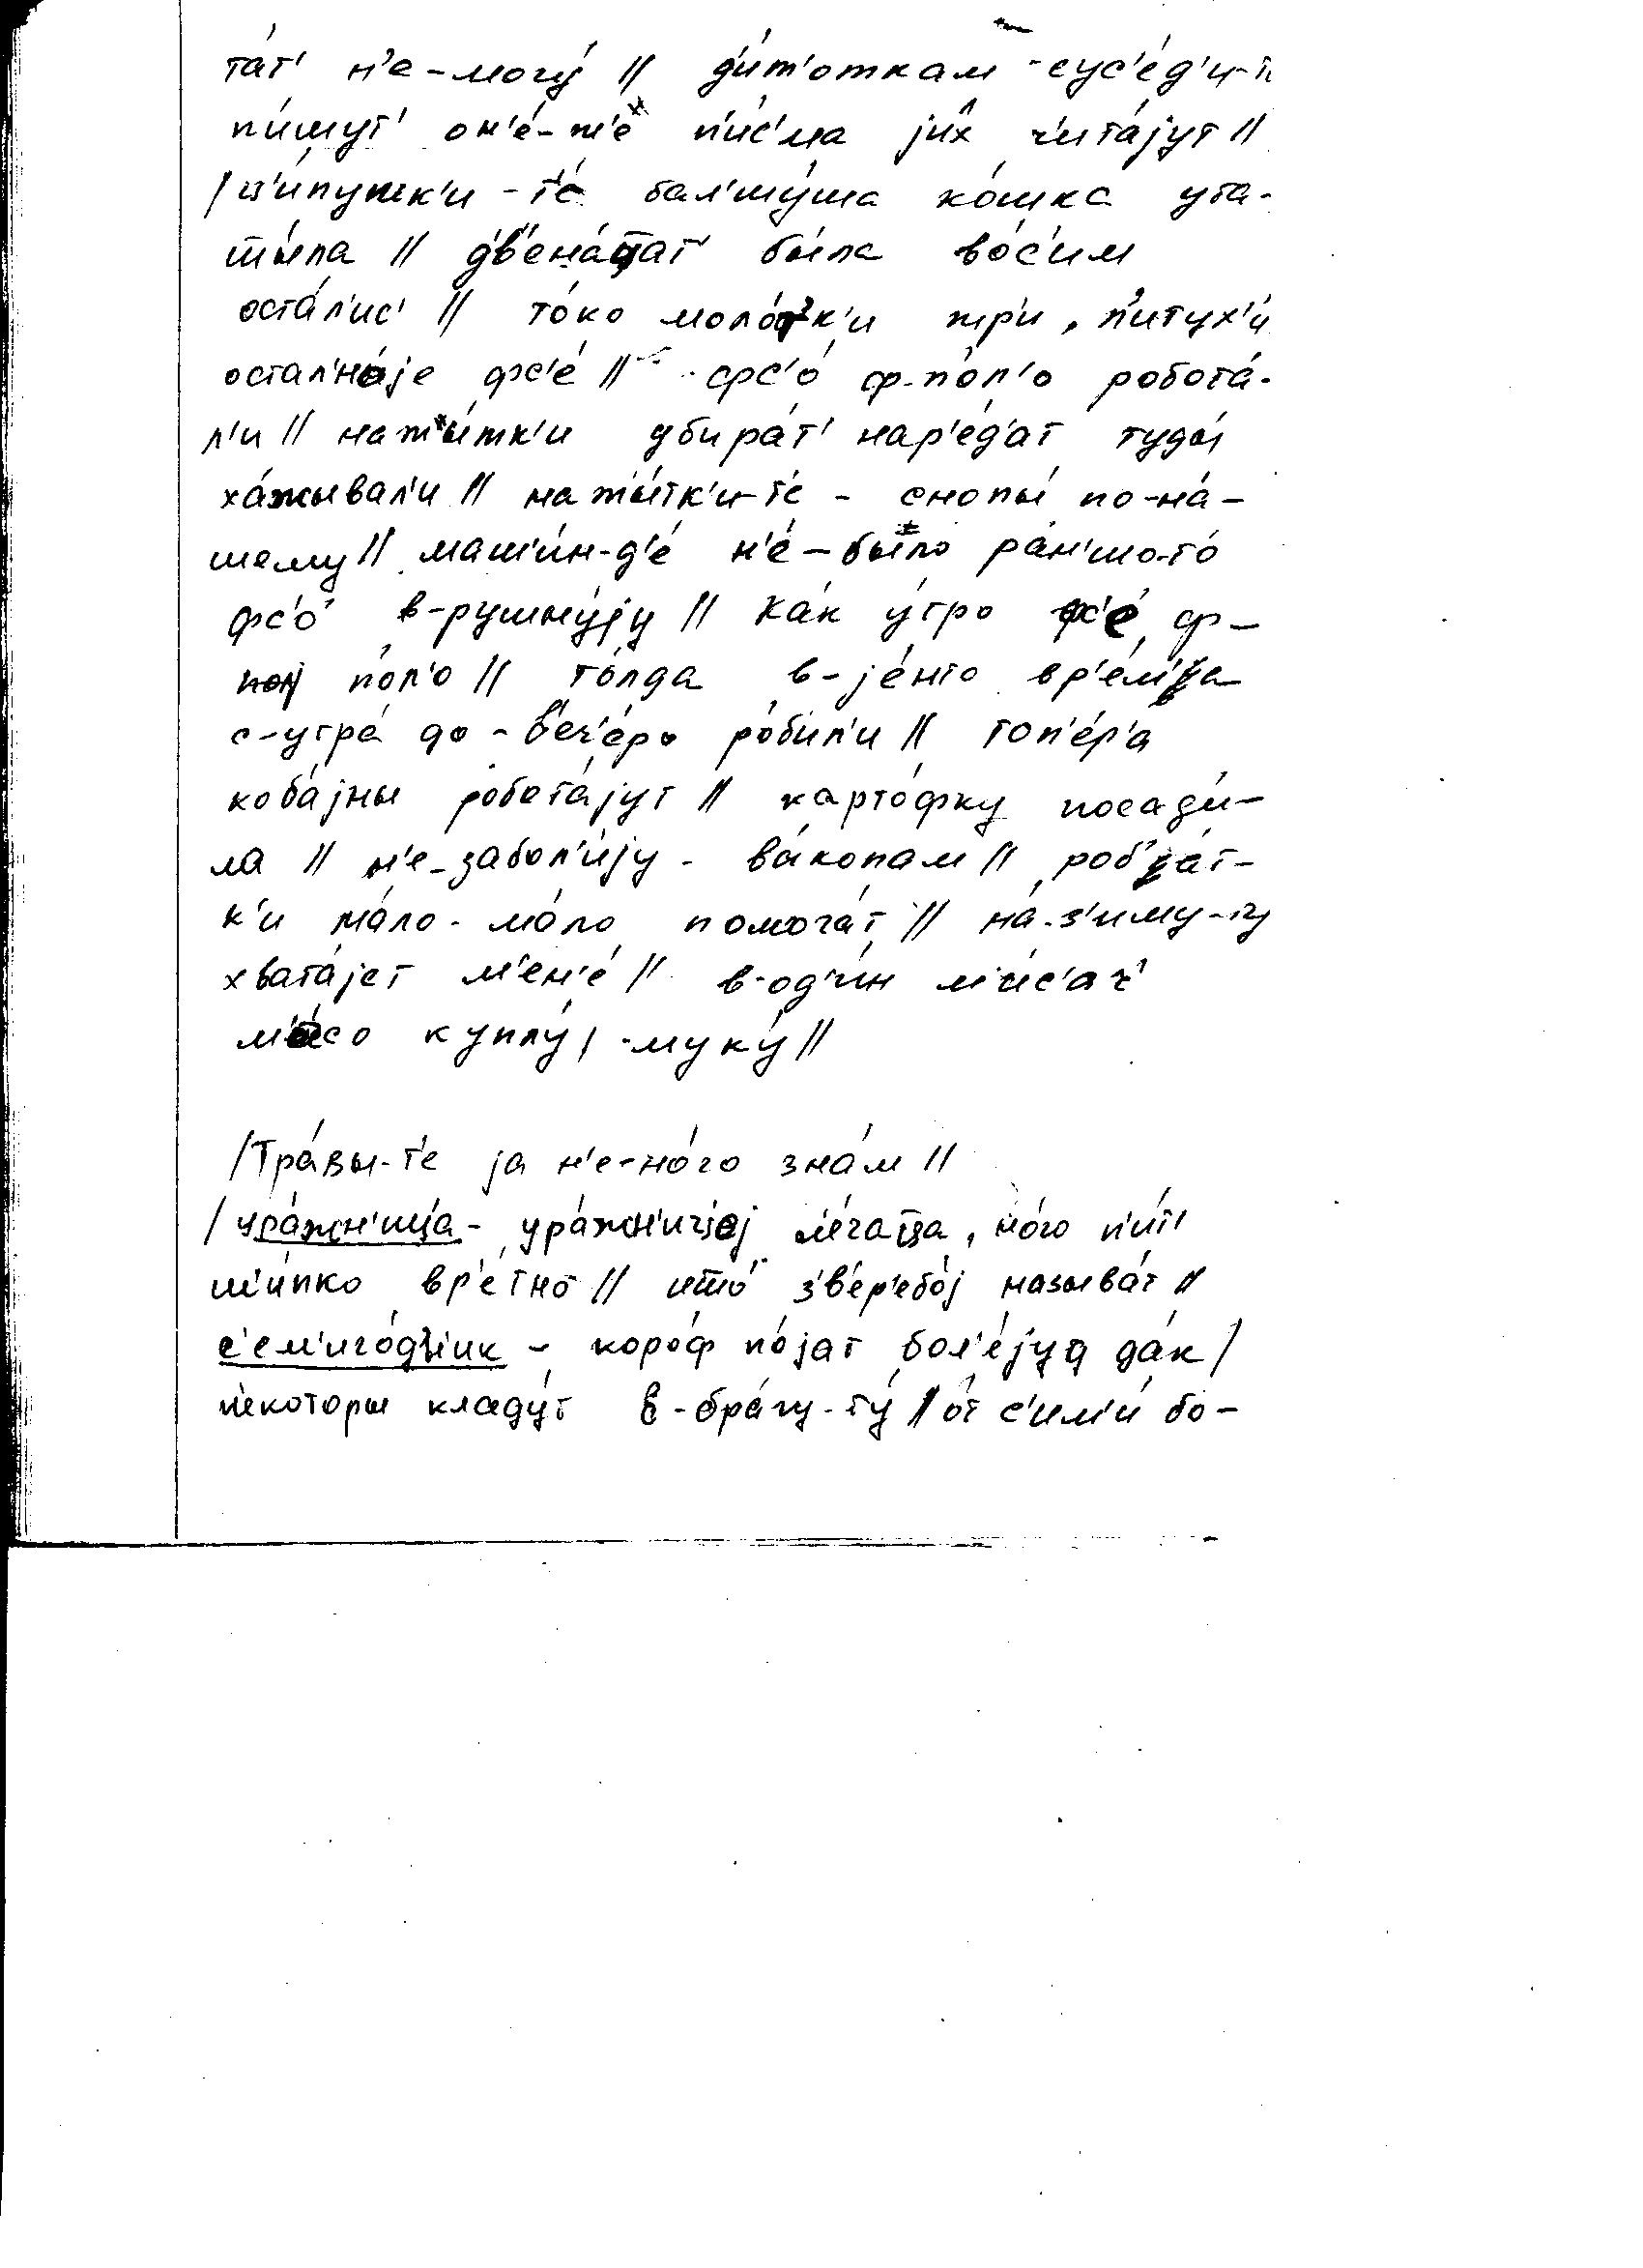 та́т' н'е-могу́ // д'и́т'откам сус'е́д'и-т
п'и́шут' он'е́-ж'е п'и́с'ма jи́х ч'ита́jут //
/ц'и́пушк'и-т'е бал'шу́ша ко́шка ута-
шы́ла // дв'ена́цат' бы́ла во́с'им
оста́л'ис' // то́ко моло́тк'и тр'и, п'итух'и́
остал'но́jе фс'е́ // фс'о́ ф-по́л'о робота́-
л'и // нажы́тк'и убира́т' нар'е́д'ат туды́
ха́жывал'и // нажы́тк'и-т'е - снопы́ по-на́-
шему // машы́н-д'е́ н'е́-было ра́н'шо-то́
фс'о́ в-рушну́jу // ка́к у́тро фс'е́ ф-
по́л'о // то́лда в-jе́нто вр'е́м'а
с-утра́ до-в'еч'е́ро ро́бил'и // топ'е́р'а
коба́jны робота́jут // карто́фку посади́-
ла // н'е-забол'и́jу - вы́копам // роб'а́т-
к'и ма́ло-ма́ло помога́т // на́-з'иму-ту
хвата́jет м'ен'е́ // в-од'и́н м'и́с'ац'
м'а́со купл'у́, муку́ //
/Тра́вы-т'е jа н'е-но́го зна́м //
/ура́жн'ица - ура́жн'ицеj л'е́чаца, но́го п'и́т'
шы́пко вр'е́тно // што́ з'в'ер'ебо́j называ́т //
с'ем'иго́дн'ик - коро́ф по́jат бол'е́jуд да́к /
н'е́которы кладу́т в-бра́гу-ту́ // о́т с'им'и́ бо-